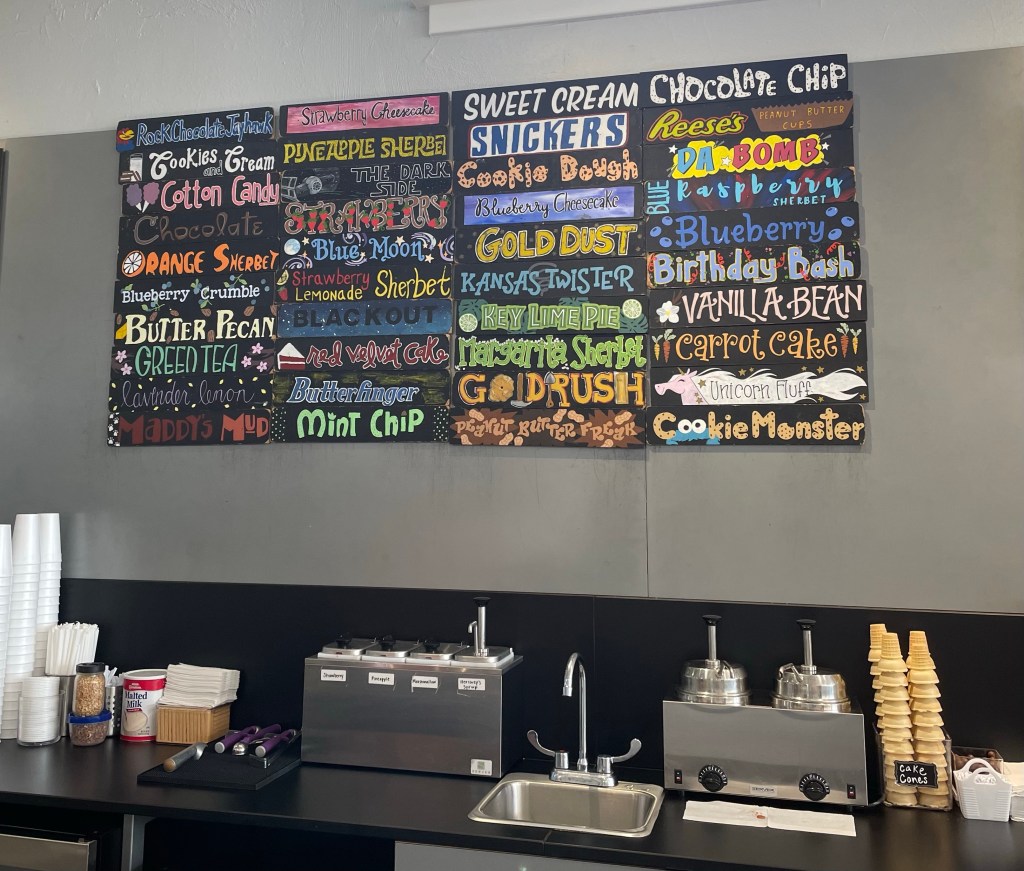 Rock Chocolate Jayhawk
Cookies and Cream
Cotton Candy
Chocolate
ORANGE SHERBET
Blueberry Crumble
BUTTER PECAN
GREEN TEA
lavinder lemon
MADDY'S MUD
Strawberry Cheesecake
PINEAPPLE SHERBET
THE DARK
SIDE
STRAWBERRY
Blue Moon
Strawberry
Lemonade Sherbet
BLACKOUT
red velvet cake
Butterfinger
Mint Chip
SWEET CREAM
SNICKERS
Cookie Dough
Blueberry Cheesecake
GOLD DUST
KANSAS TWISTER
KEY LIME PIE
Margarita Sherbet
GOLD RUSH
PEANUT BUTTER FREAK
CHOCOLATE CHIP
Reese's PEANUT BUTTER
CUPS
DA BOMB
BLUE Raspberry
SHERBET
Blueberry
Birthday Bash
VANILLA BEAN
CARROT CAKE
Unicorn Fluff
Cookie Monster
Malted
Milk
Strawberry
Pineapple
Marshmallow
Hershey's
Syrup
Cake
Cones